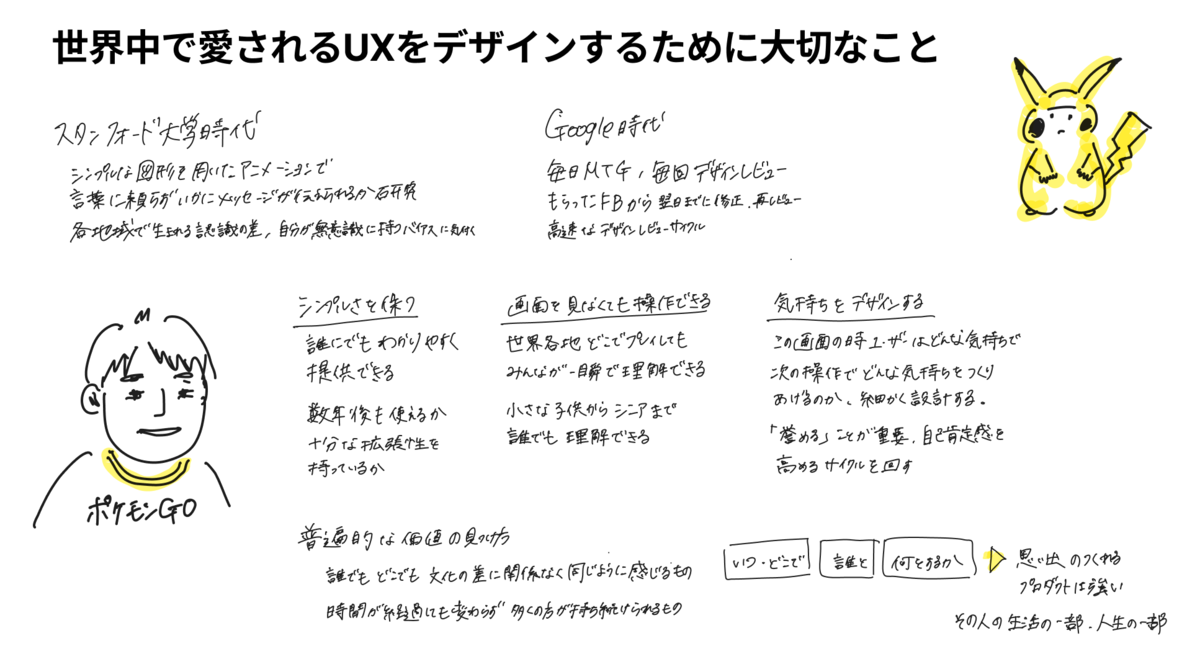 世界中で愛されるUXをデザインするために大切なこと
スタンフォード大学時代
シンプルな図形を用いたアニメーションで
言葉に頼らずいかにメッセージが伝えられるか研究
各地域で生まれる認識の差，自分が無意識に持つバイアスに気付く
Google時代
毎日MTG，毎回デザインレビュー
もらったFBから翌日までに修正、再レビュー
高速なデザインレビューサイクル
シンプルさを保つ
誰にでもわかりやすく
提供できる
数年後も使えるか
十分な拡張性を
持っているか
画面を見なくても操作できる
世界各地どこでプレイしても
みんなが一瞬で理解できる
小さな子供からシニアまで
誰でも理解できる
気持ちをデザインする
この画面の時ユーザーはどんな気持ちで
次の操作でどんな気持ちをつくり
あげるのか、細かく設計する。
「誉める」ことが重要，自己肯定感を
高めるサイクルを回す
ポケモンGO
普遍的な価値の見つけ方
誰でもどこでも文化の差に関係なく同じように感じるもの
時間が経過しても変わらず多くの方が持ち続けられるもの
いつ・どこで 誰と 何をするか
思い出のつくれる
プロダクトは強い
その人の生活の一部・人生の一部